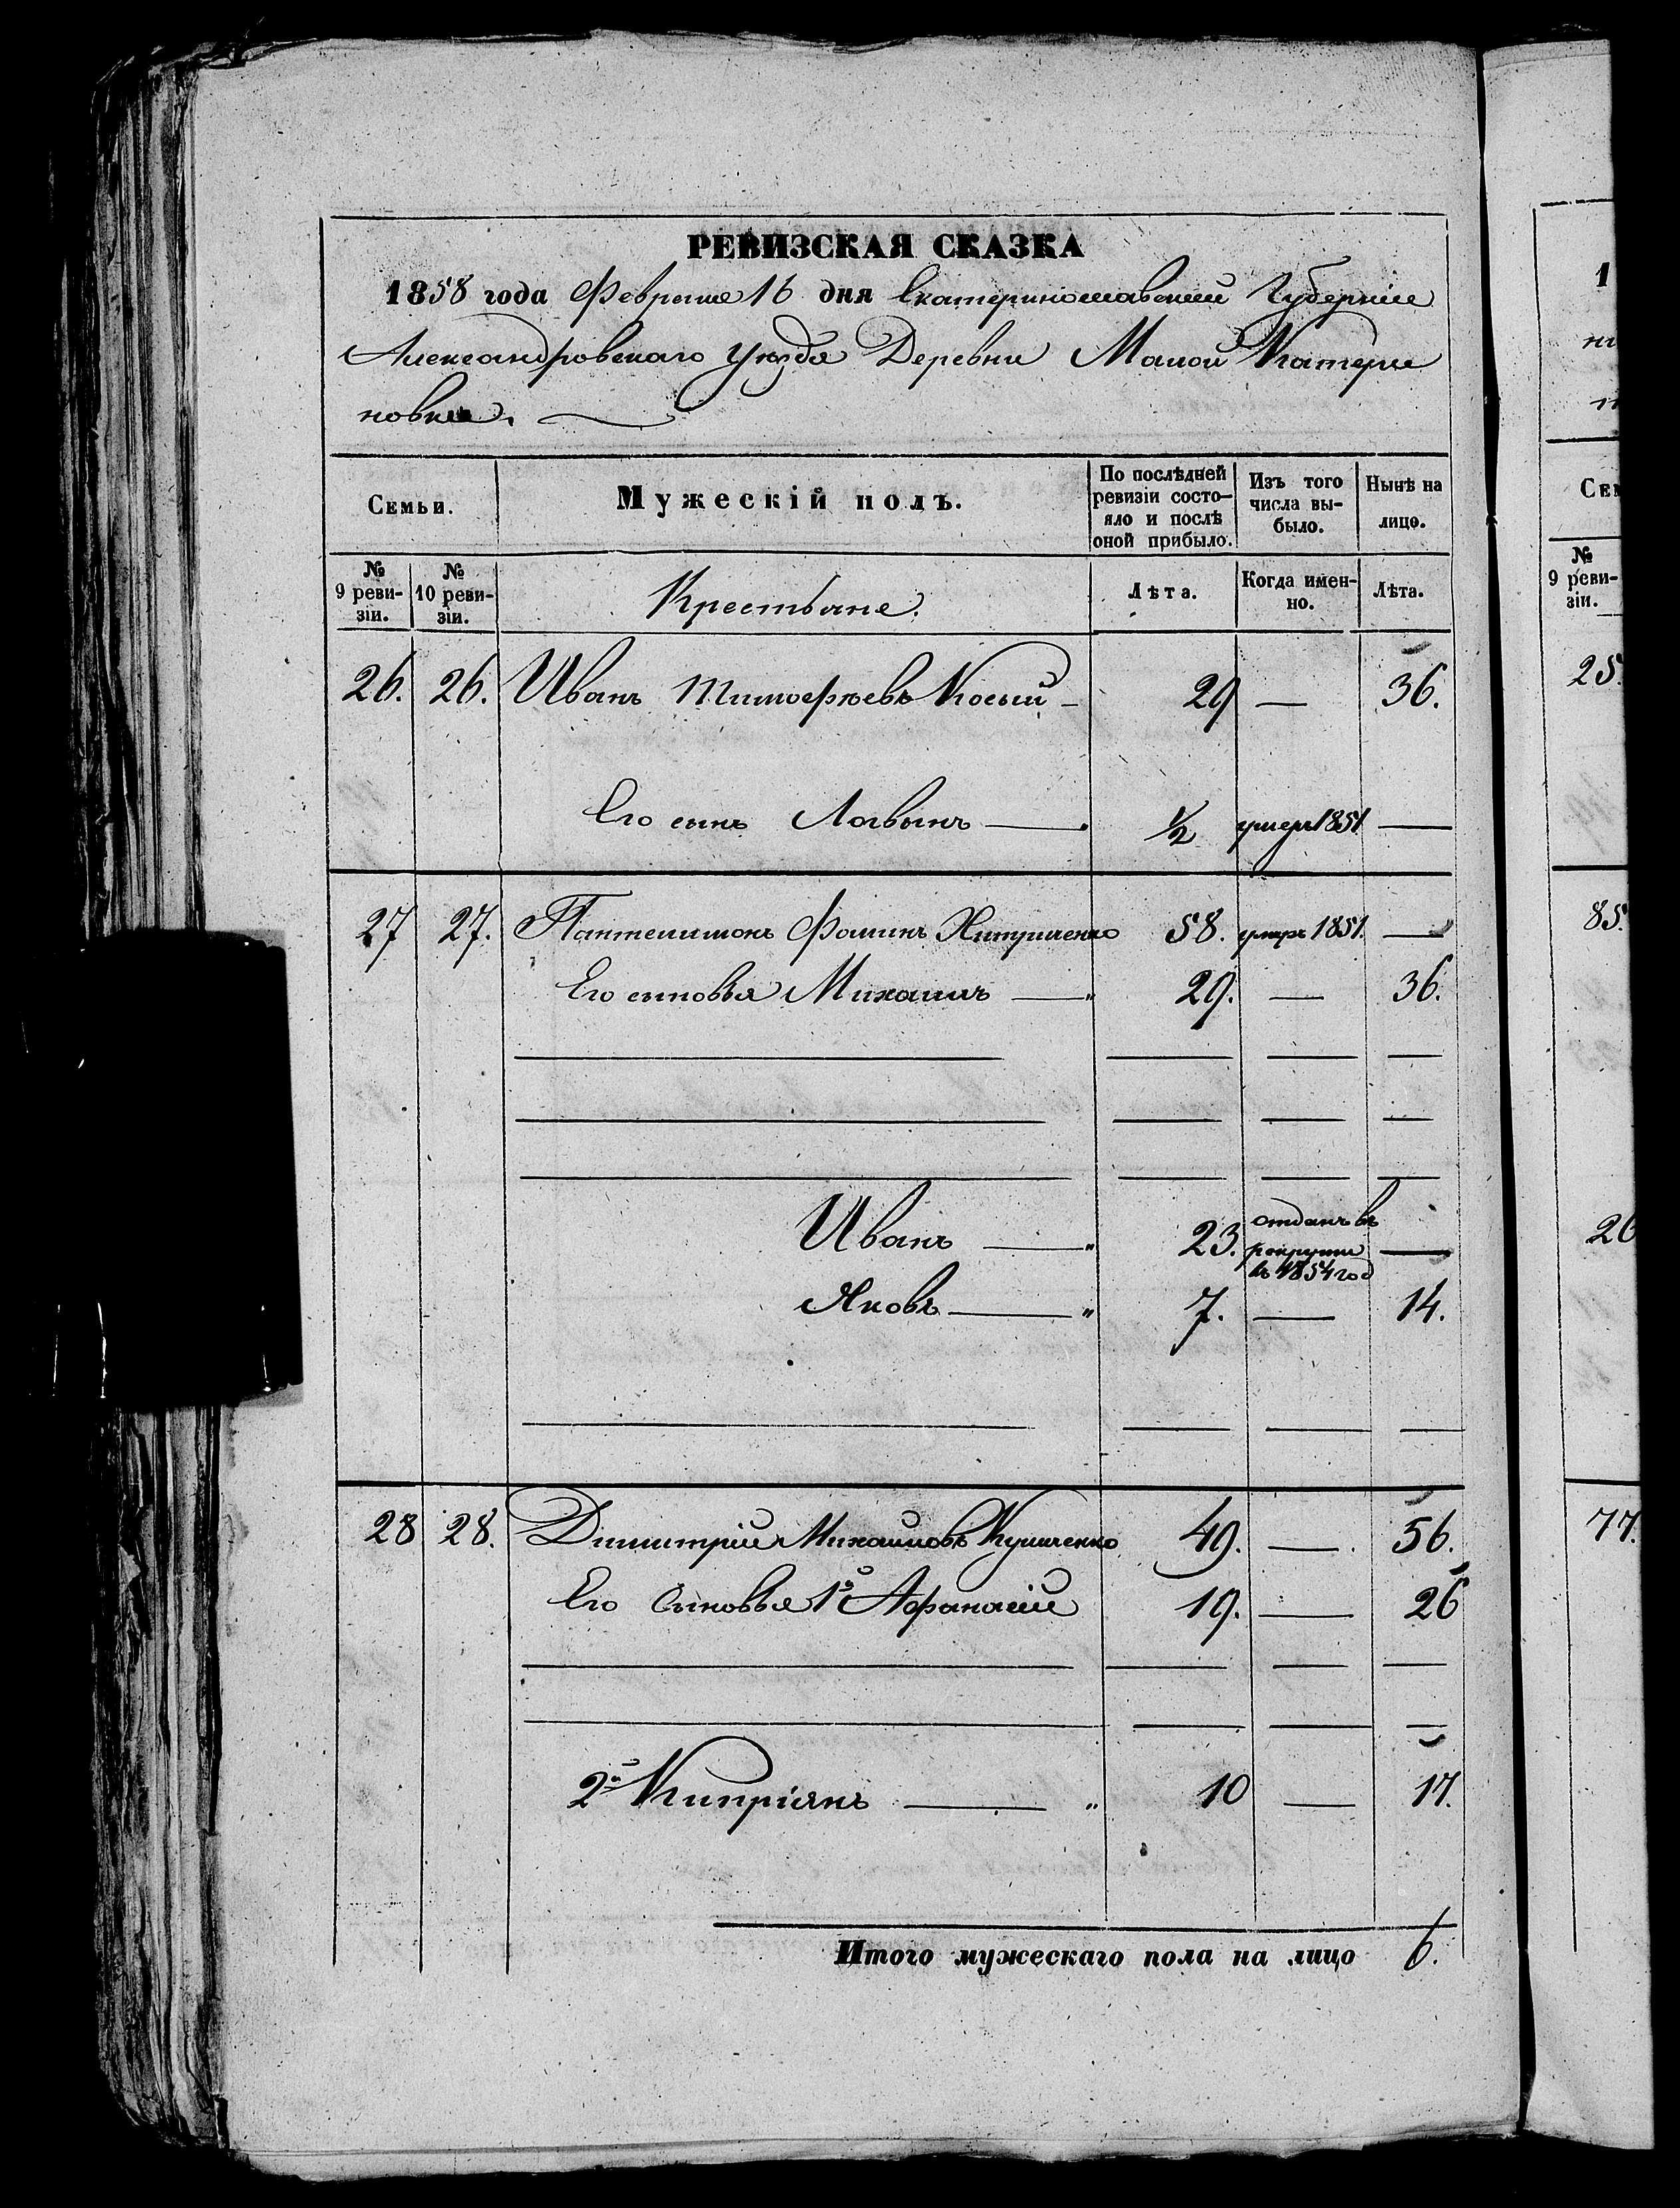 РЕВИЗСКАЯ СКАЗКА
1858 года Февраля 16 дня Екатеринославской Губерніи
Александровскаго Уѣзда Деревни Малой Катери
новки.
Семьи.
Мужескій полъ.
По послѣдней ревизіи состояло и послѣ оной прибыло.
Изъ того числа выбыло.
Нынѣ на лицо.
№ 9 ревизіи.
№ 10 ревизіи.
Крестьяне.
Лѣта.
Когда именно.
Лѣта.
26. 26. Иванъ Тимофѣевъ Косый 29 — 36.
Его сынъ Логвынъ — 1/2 умеръ 1851 —
27 27. Пантелимонъ Фоминъ 58. умеръ 1851. —
Его сыновья Михаилъ — " 29. — 36.
Иванъ — " 23. отданъ въ рекруты въ 1854 год —
Яковъ — " 7. — 14.
28 28. Димитрій Михайловъ Кушченко 49. — 56.
Его Сыновья 1й Афанасій 19. — 26
2й Кипріянъ — " 10 — 17.
Итого мужескаго пола на лицо 6.
1
Сем
№ 9 ревизіи.
25.
85.
26
77.